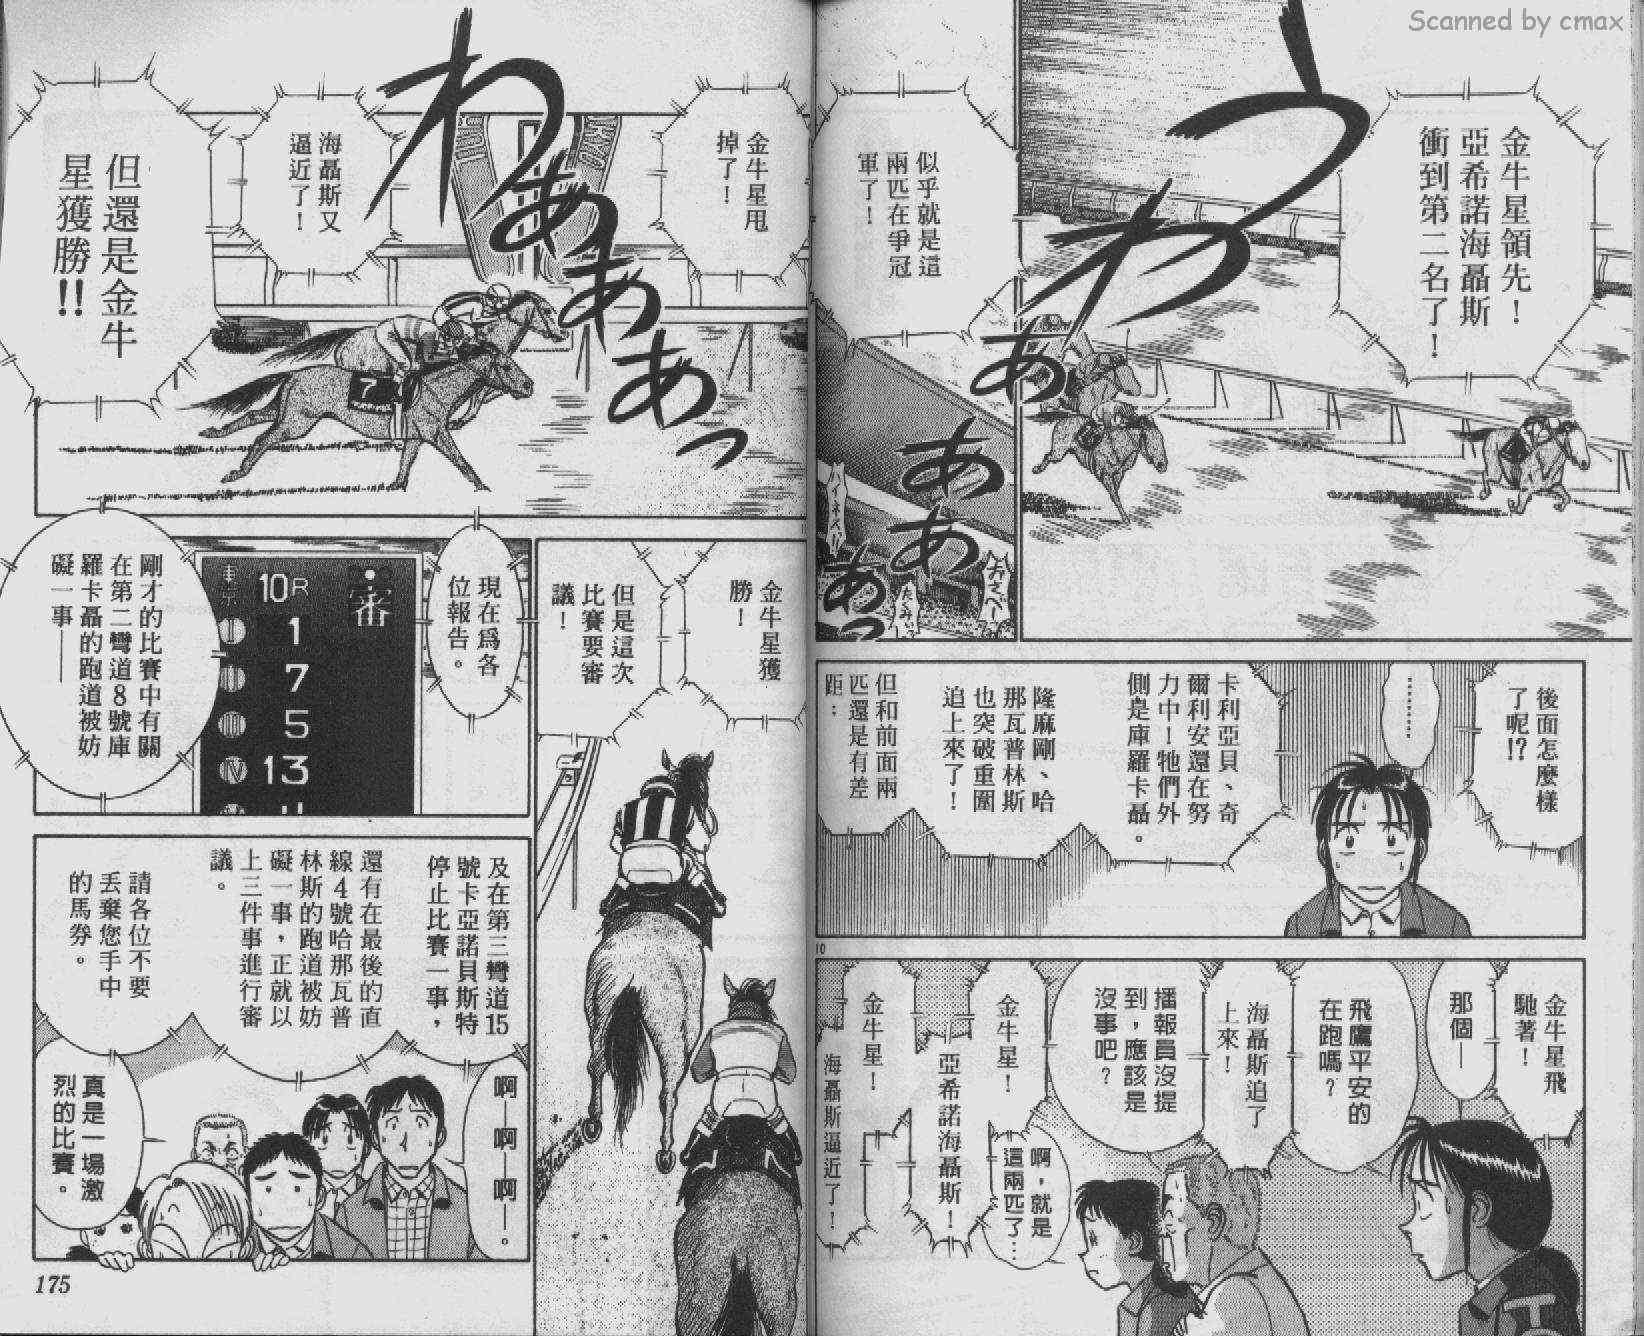 Scanned by cmax
金牛星領先！
亞希諾海聶斯
衝到第二名了！
わあ
ああ
あ
似乎就是這
兩匹在爭冠
軍了！
ハイネスー!!
おさべー
後面怎麼樣
了呢!?
………
卡利亞貝、奇
爾利安還在努
力中！牠們外
側是庫羅卡聶。
隆麻剛、哈
那瓦普林斯
也突破重圍
追上來了！
但和前面兩
匹還是有差
距…
10
金牛星飛
馳著！
那個—
飛鷹平安的
在跑嗎？
海聶斯追了
上來！
播報員沒提
到，應該是
沒事吧？
金牛星！
啊，就是
這兩匹了…
亞希諾海聶斯！
金牛星！
海聶斯逼近了！
金牛星甩
掉了！
わあああっ
海聶斯又
逼近了！
但還是金牛
星獲勝!!
7
金牛星獲
勝！
但是這次
比賽要審
議！
現在爲各
位報告。
審
10R
1
7
5
IV 13
剛才的比賽中有關
在第二彎道8號庫
羅卡聶的跑道被妨
礙一事——
及在第三彎道15
號卡亞諾貝斯特
停止比賽一事，
還有在最後的直
線4號哈那瓦普
林斯的跑道被妨
礙一事，正就以
上三件事進行審
議。
請各位不要
丟棄您手中
的馬券。
啊—啊 啊—。
真是一場激
烈的比賽。
175